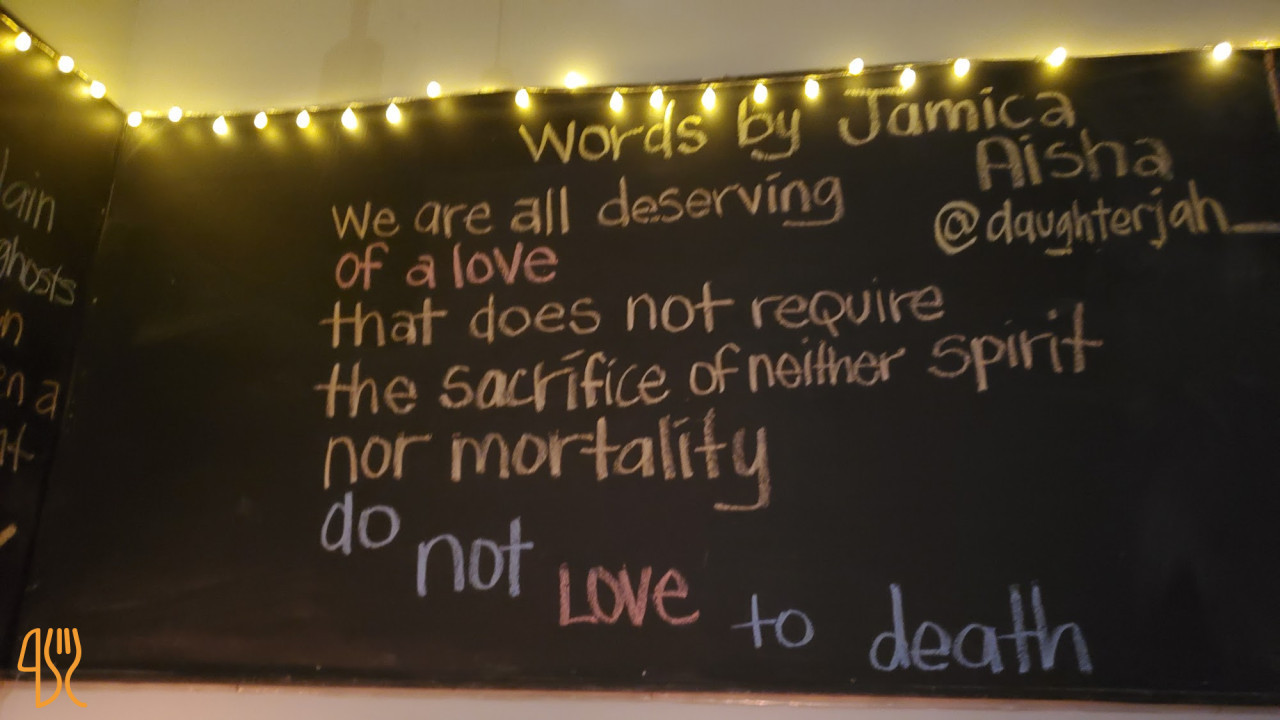 Words by Jamica
Aisha
@daughterjah_
We are all deserving
of a love
that does not require
the sacrifice of neither spirit
nor mortality
do not Love to death
ghosts